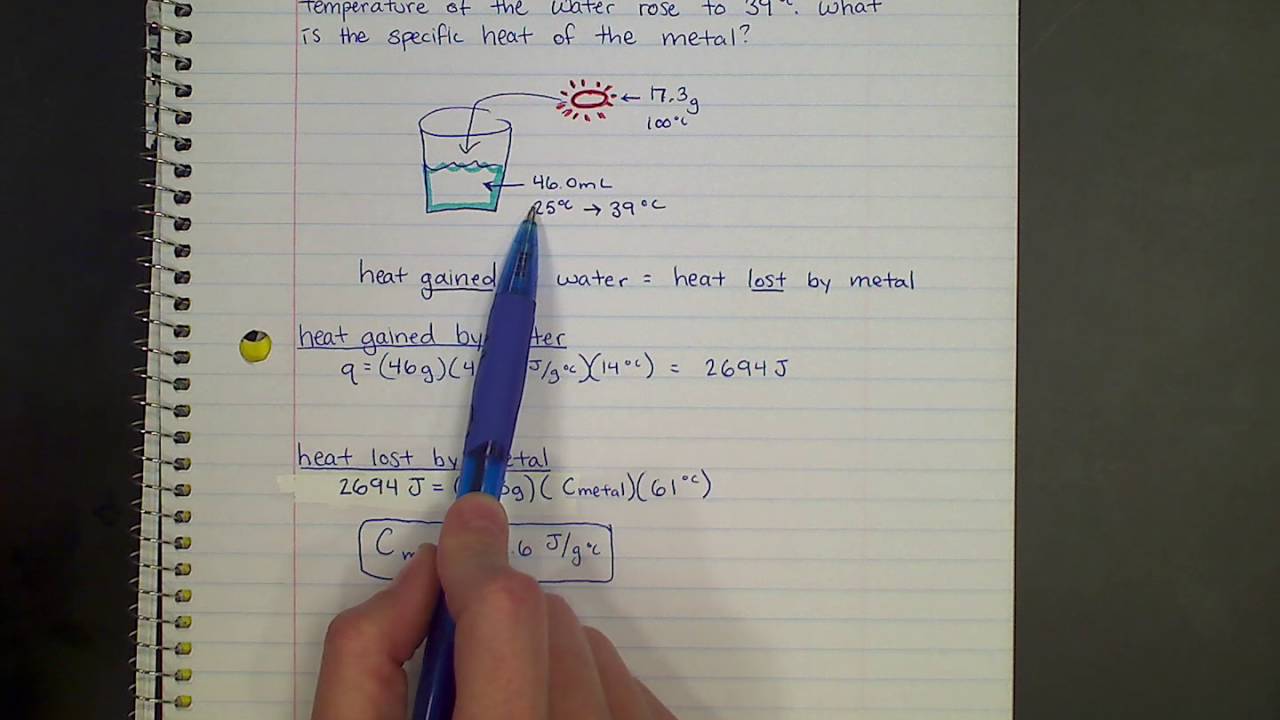 temperature of the water rose to 39°C. What
is the specific heat of the metal?
← 17.3g
100°C
46.0mL
25°C → 39°C
heat gained water = heat lost by metal
heat gained by
q = (46g)(4 J/g°C)(14°C) = 2694 J
heat lost by
2694 J = ( g)( Cmetal)(61°C)
C .6 J/g°C